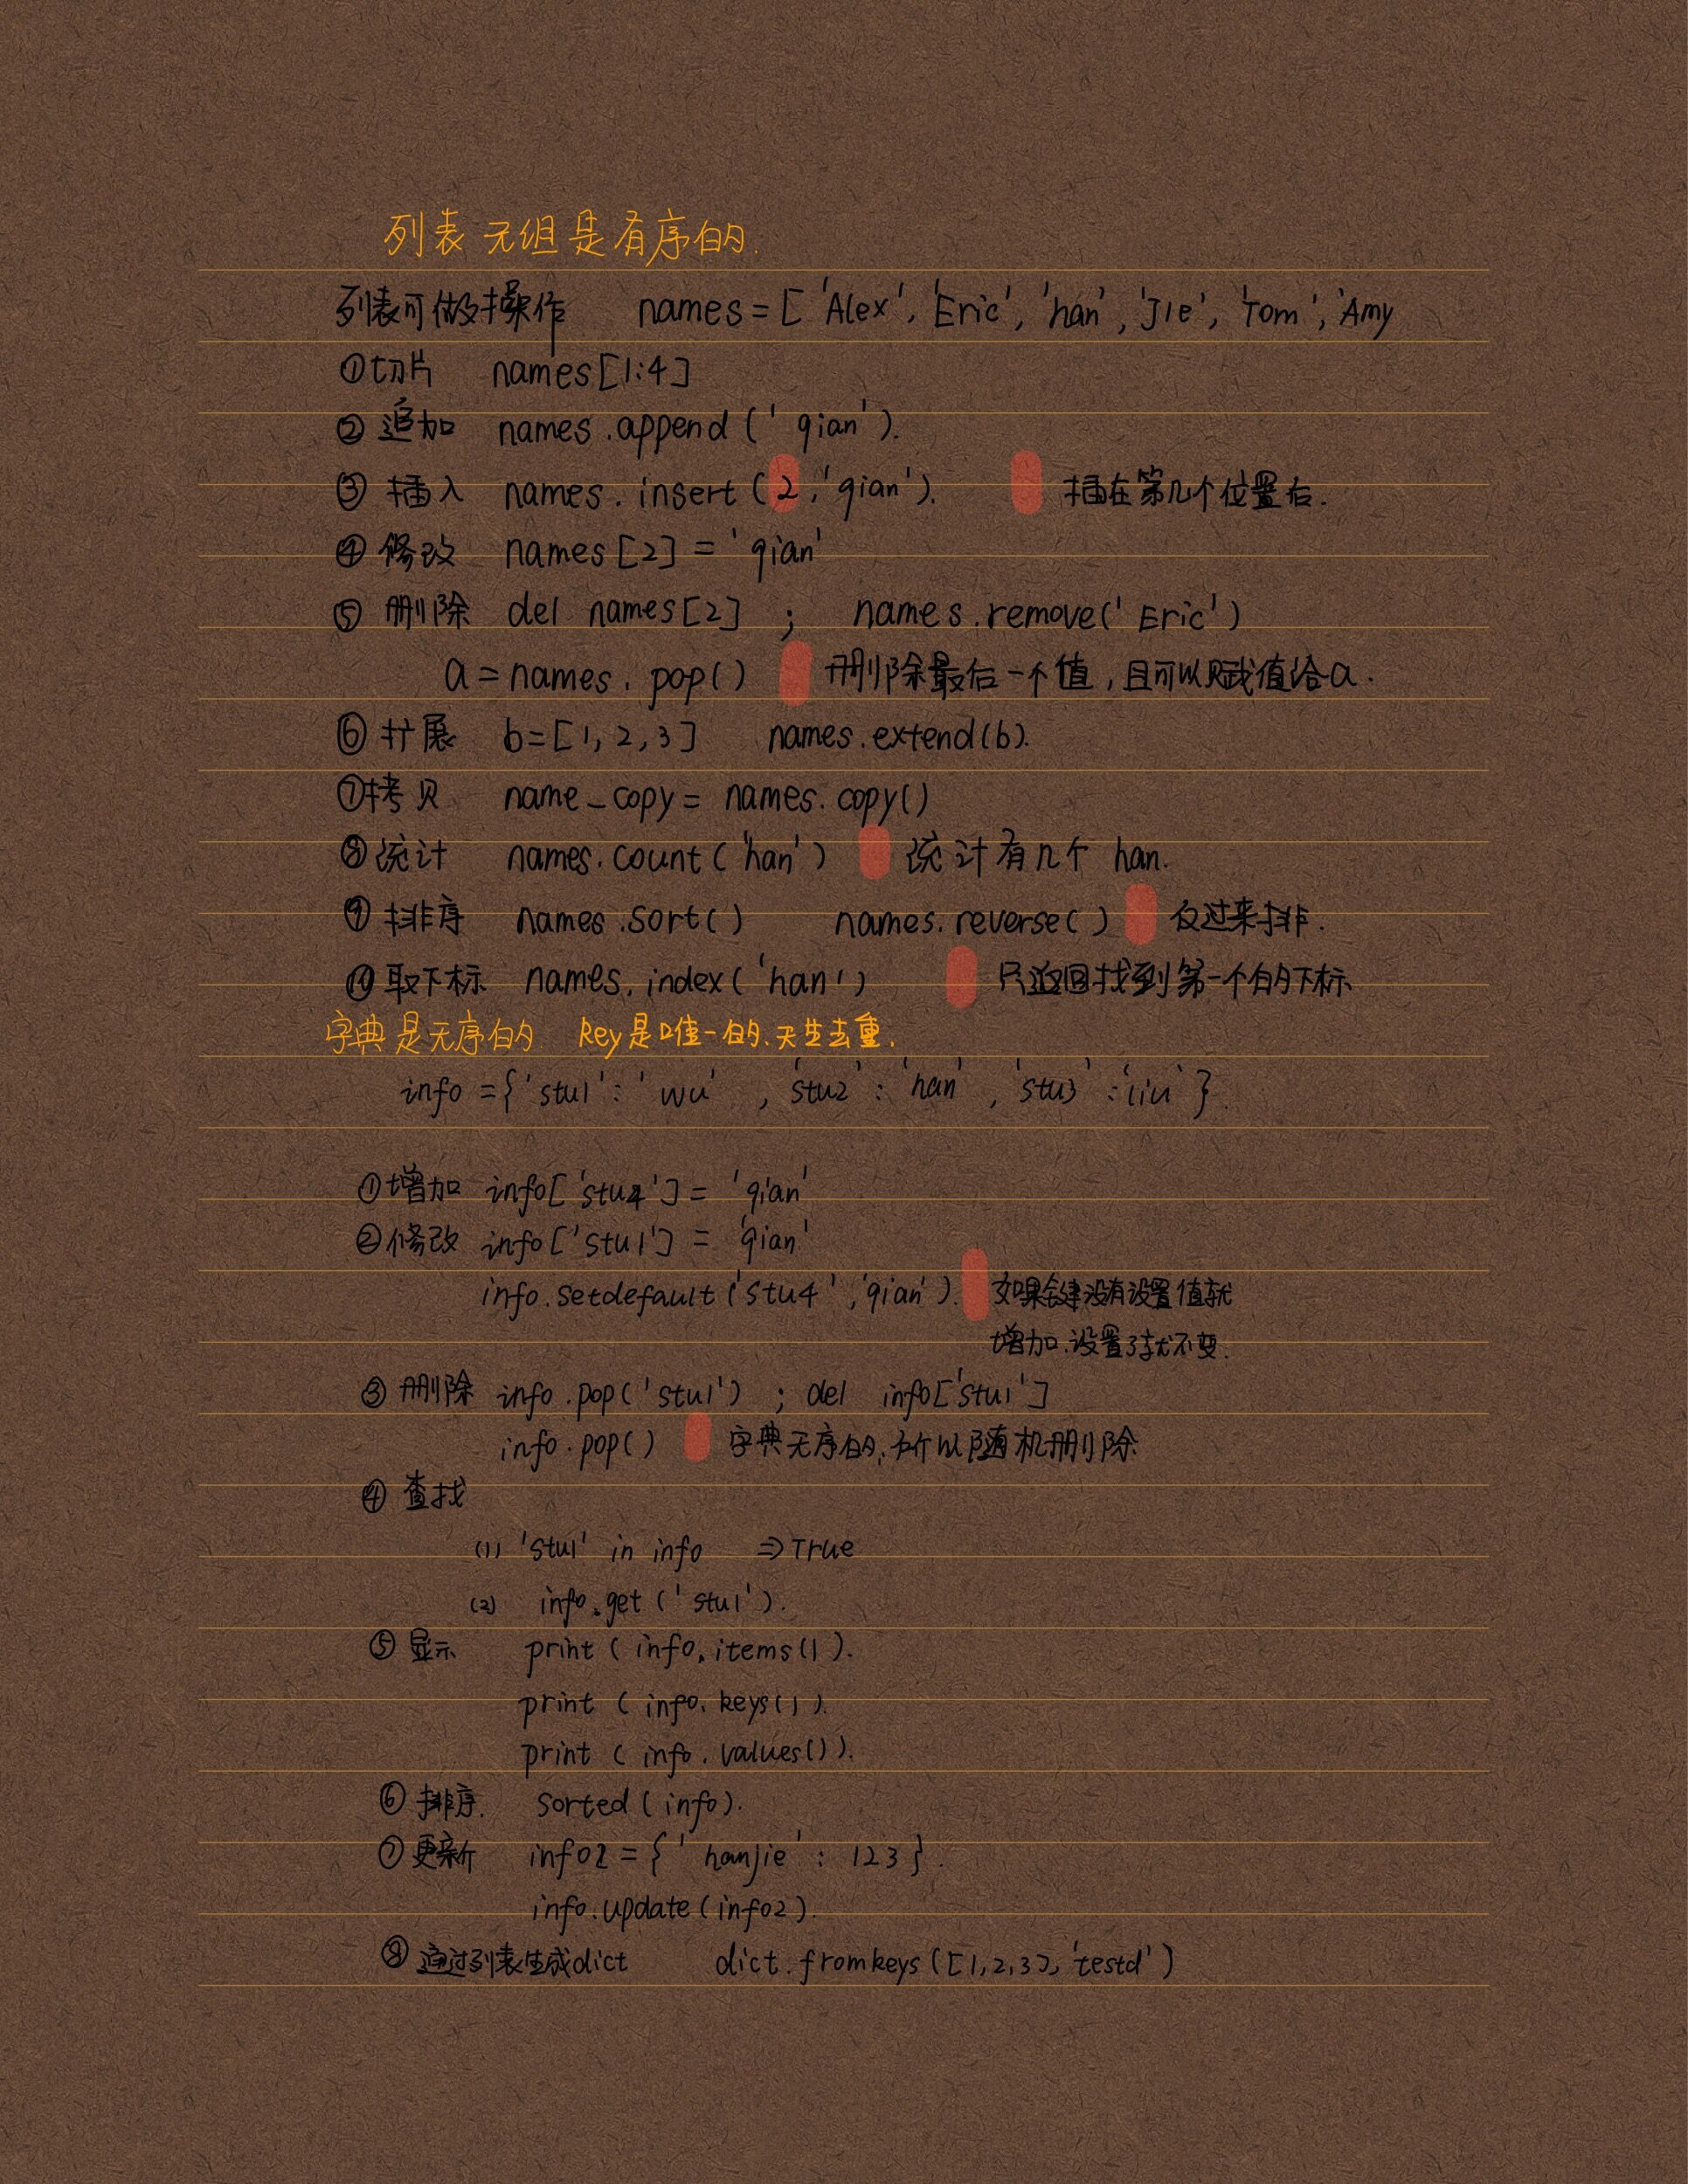 列表 元组是有序的.
列表可做操作 names = [ 'Alex', 'Eric', 'han', 'Jie', 'Tom', 'Amy
①切片 names[1:4]
② 追加 names.append(' qian').
③ 插入 names.insert(2,'qian'). 插在第几个位置后.
④ 修改 names[2] = 'qian'
⑤ 删除 del names[2] ; names.remove('Eric')
a = names.pop() 删除最后一个值,且可以赋值给a.
⑥ 扩展 b=[1, 2, 3] names.extend(b).
⑦拷贝 name_copy = names.copy()
⑧ 统计 names.count('han') 统计有几个 han.
⑨ 排序 names.sort() names.reverse() 反过来排.
⑩ 取下标 names.index('han') 只返回找到第一个的下标
字典是无序的 key是唯一的.天生去重.
info = {'stu1' : 'wu' , 'stu2' : 'han' , 'stu3' : 'liu' }.
①增加 info['stu4'] = 'qian'
②修改 info['stu1'] = 'qian'
info.setdefault('stu4','qian'). 如果键没有设置值就
增加.设置了就不变.
③ 删除 info.pop('stu1') ; del info['stu1']
info.pop() 字典无序的,所以随机删除
④ 查找
(1) 'stu1' in info ⇒True
(2) info.get('stu1').
⑤ 显示 print ( info.items()).
print ( info.keys()).
print ( info.values()).
⑥ 排序. sorted(info).
⑦ 更新 info2 = {' hanjie' : 123}.
info.update(info2).
⑧ 通过列表生成dict dict.fromkeys([1,2,3],'testd')